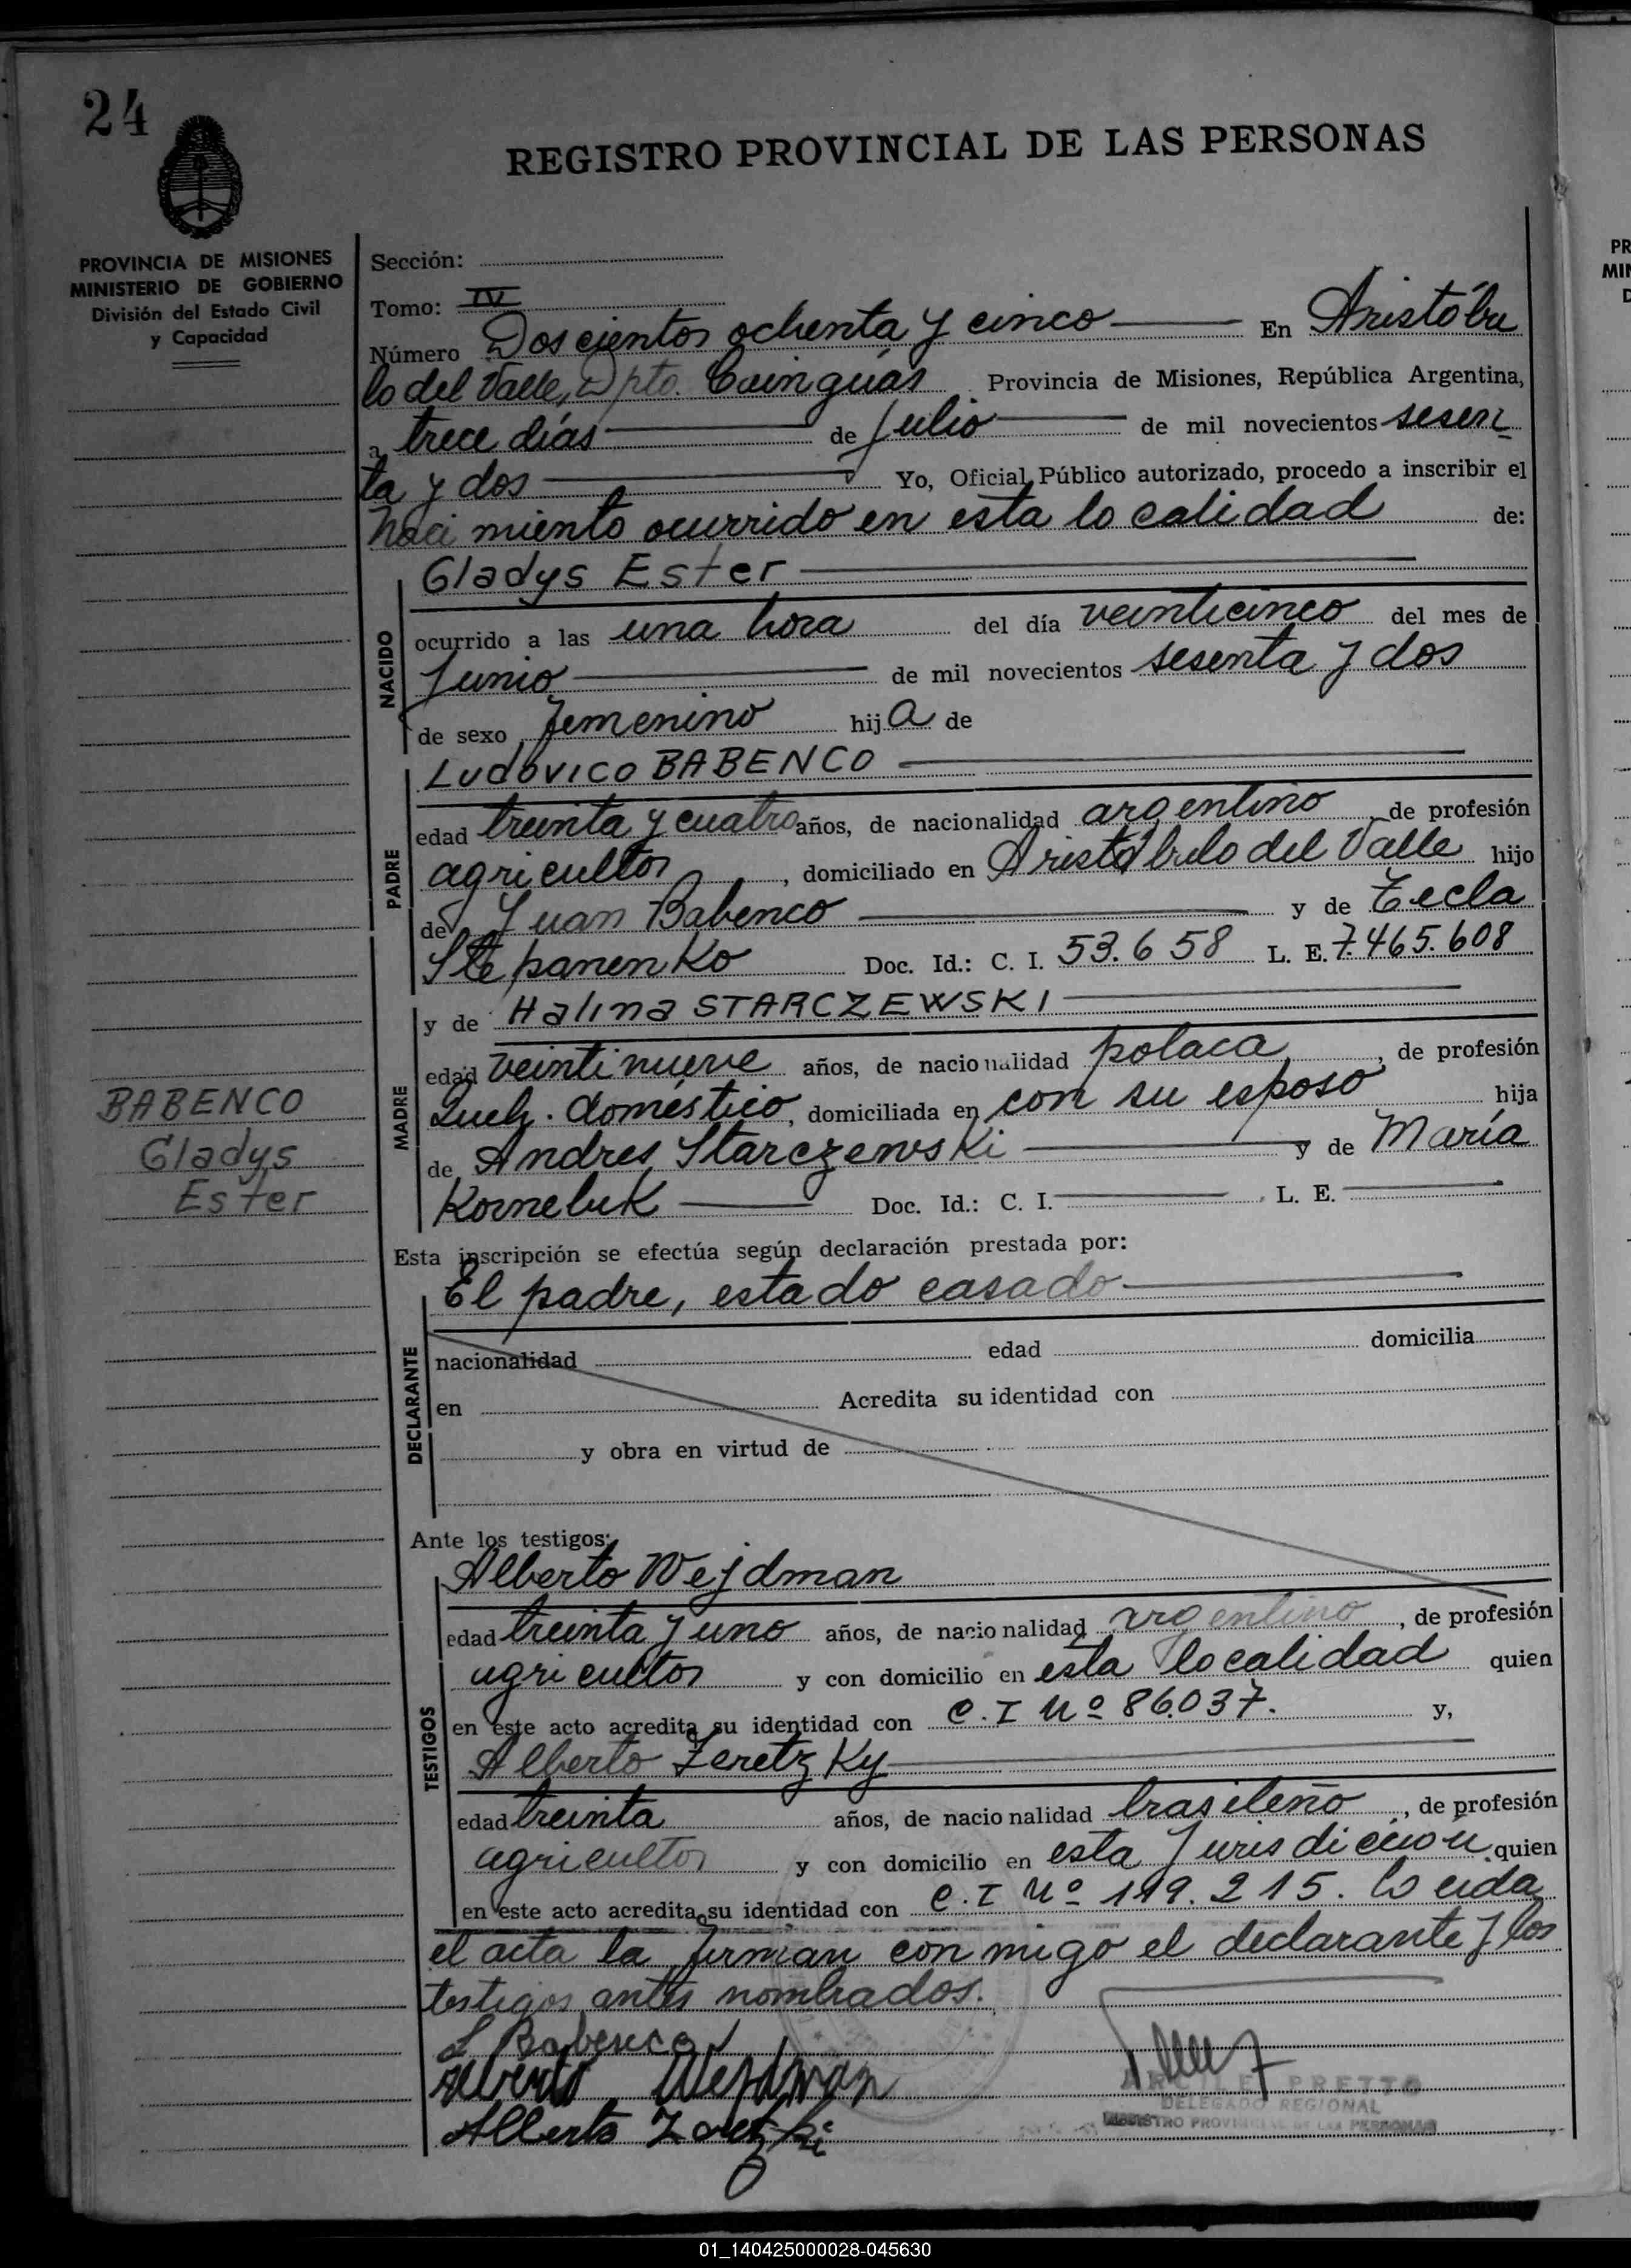 24
REGISTRO PROVINCIAL DE LAS PERSONAS
PROVINCIA DE MISIONES
MINISTERIO DE GOBIERNO
División del Estado Civil
y Capacidad
Sección:
Tomo: IV
Número Doscientos ochenta y cinco En Aristóbu
lo del Valle, Dpto. Cainguás Provincia de Misiones, República Argentina,
a trece días de Julio de mil novecientos sesen
ta y dos Yo, Oficial Público autorizado, procedo a inscribir el
naci miento ocurrido en esta localidad de:
NACIDO
Gladys Ester
ocurrido a las una hora del día veinticinco del mes de
Junio de mil novecientos sesenta y dos
de sexo femenino hija de
PADRE
Ludovico BABENCO
edad treinta y cuatro años, de nacionalidad argentino de profesión
agricultor, domiciliado en Aristóbulo del Valle hijo
de Juan Babenco y de Tecla
Stepanenko Doc. Id.: C. I. 53.658 L. E. 7.465.608
MADRE
y de Halina STARCZEWSKI
edad veintinueve años, de nacionalidad polaca, de profesión
Queh. doméstico, domiciliada en con su esposo hija
de Andres Starczewski y de María
Korneluk Doc. Id.: C. I. L. E.
BABENCO
Gladys
Ester
Esta inscripción se efectúa según declaración prestada por:
DECLARANTE
El padre, estado casado
nacionalidad edad domicilia
en Acredita su identidad con
y obra en virtud de
Ante los testigos:
TESTIGOS
Alberto Wejdman
edad treinta y uno años, de nacionalidad argentino, de profesión
agricultor y con domicilio en esta localidad quien
en este acto acredita su identidad con C. I Nº 86.037. y,
Alberto Zeretzky
edad treinta años, de nacionalidad brasileño, de profesión
agricultor y con domicilio en esta Jurisdicción quien
en este acto acredita su identidad con C. I Nº 119.215. Leida
el acta la firman conmigo el declarante y los
testigos antes nombrados.
L Babenco
Alberto Wejdman
Alberto
PRETTO
DELEGADO REGIONAL
REGISTRO PROVINCIAL DE LAS PERSONAS
PR
MIN
D
01_140425000028-045630